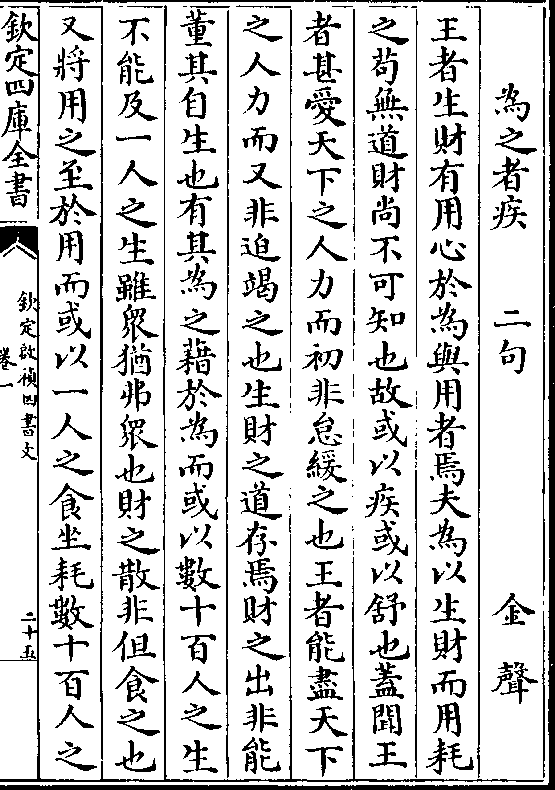 為之者疾　二句　金聲
王者生財有用心於為與用者焉夫為以生財而用耗
之苟無道財尚不可知也故或以疾或以舒也蓋聞王
者甚愛天下之人力而初非怠緩之也王者能盡天下
之人力而又非迫竭之也生財之道存焉財之出非能
董其自生也有其為之藉於為而或以數十百人之生
不能及一人之生雖眾猶弗眾也財之散非但食之也
又將用之至於用而或以一人之食坐耗數十百人之
欽定四庫全書
欽定啟禎四書文
卷一
二十五